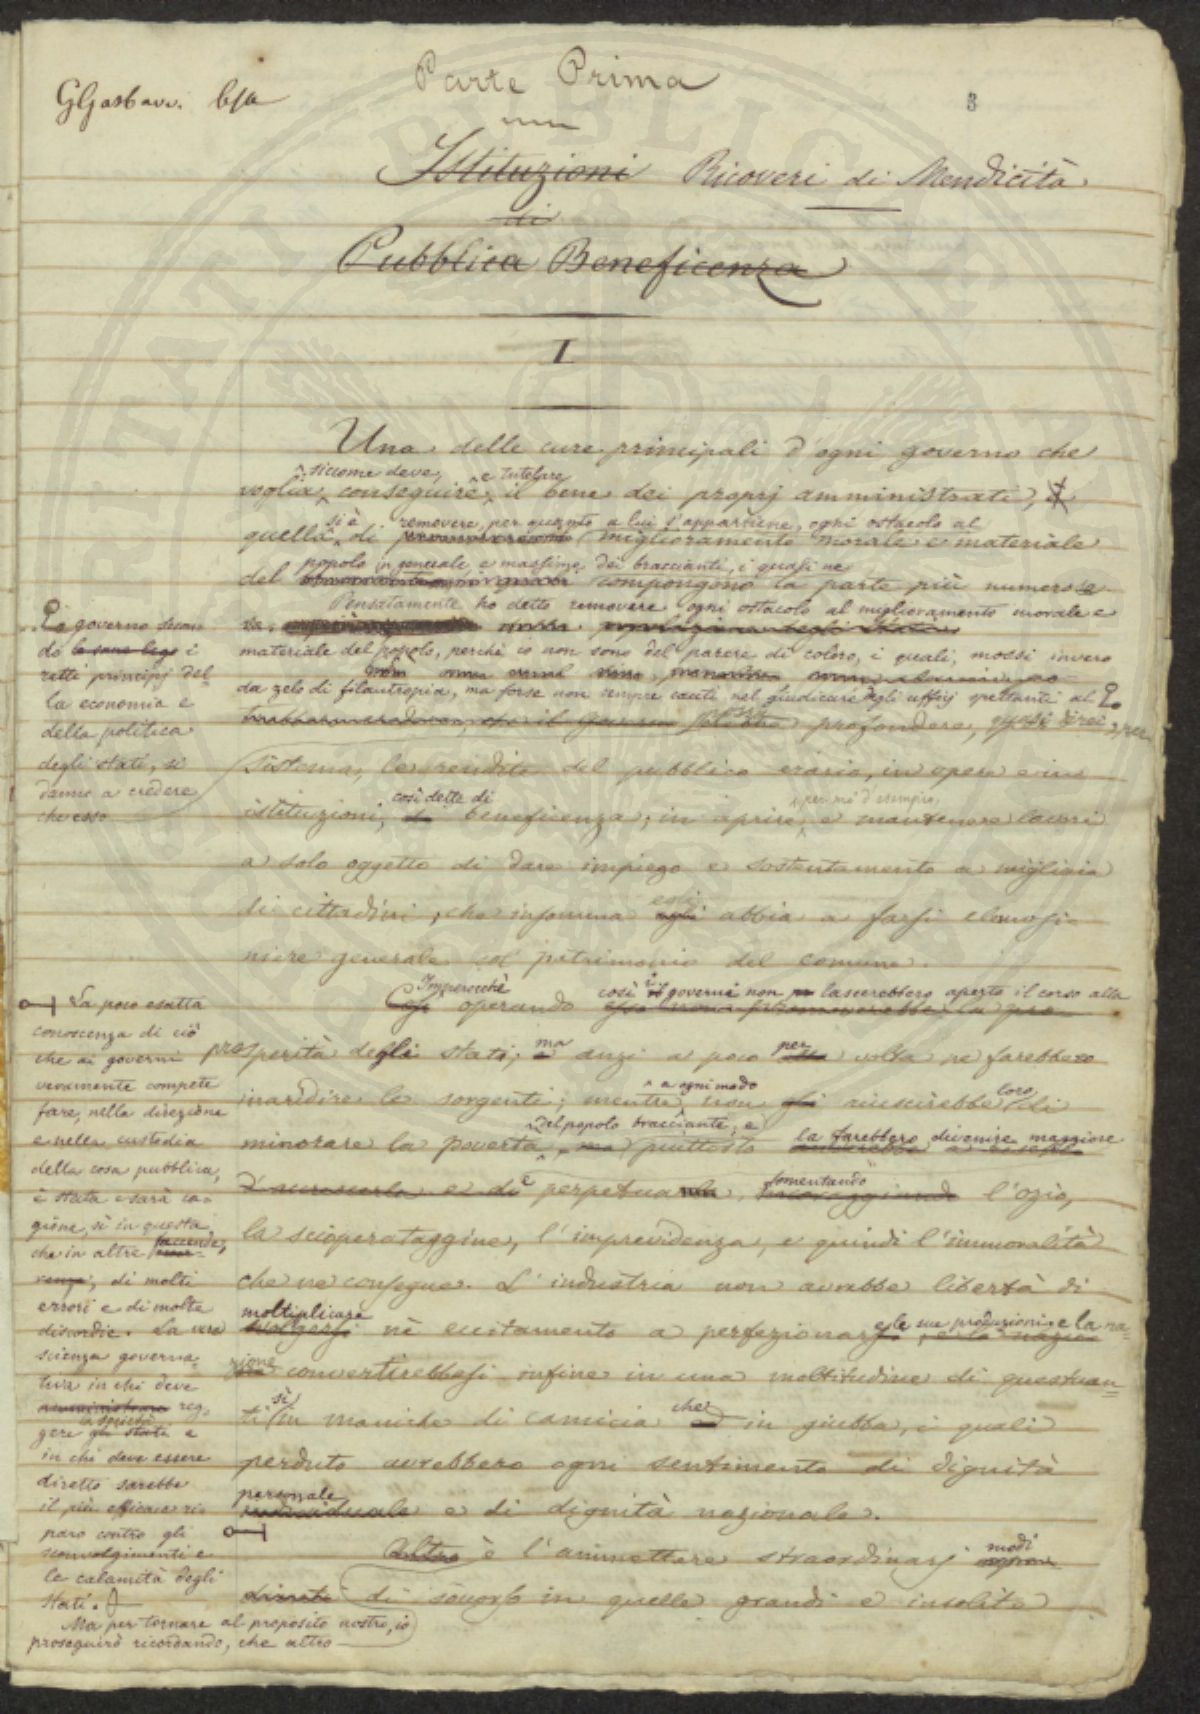 Parte Prima
3
Istituzioni Ricoveri di Mendicità
di
Pubblica Beneficenza
I
Una delle cure principali d'ogni governo che
siccome deve, e tutelare
voglia conseguire il bene dei proprj amministrati, è
si è removere, per quanto a lui s'appartiene, ogni ostacolo al
quella di miglioramento morale e materiale
popolo in generale e massime dei braccianti, i quali ne
del compongono la parte più numerosa
Pensatamente ho detto removere ogni ostacolo al miglioramento morale e
materiale del popolo, perchè io non sono del parere di coloro, i quali, mossi invero
da zelo di filantropia, ma forse non sempre cauti nel giudicare degli uffizj spettanti al
governo secon-
do le sane leggi i
retti principj del-
la economia e
della politica
degli stati, si
danno a credere
che esso
profondere, quasi direi, per
sistema, le rendite del pubblico erario, in opere e in
così dette di per mo' d'esempio,
istituzioni, di beneficenza; in aprire, e mantenere lavori
a solo oggetto di dare impiego e sostentamento a migliaia
di cittadini, che insomma egli abbia a farsi elemosi-
niere generale col patrimonio del comune.
Imperocchè così i governi non lascerebbero aperto il corso alla
Così operando
prosperità degli stati; ma anzi a poco per volta ne farebbero
a ogni modo
inaridire le sorgenti; mentre non riuscirebbe loro di
del popolo bracciante, e la farebbero divenire maggiore
minorare la povertà, ma piuttosto
d'accrescerla e di perpetuarla, fomentando l'ozio,
la scioperataggine, l'imprevidenza, e quindi l'immoralità
che ne consegue. L'industria non avrebbe libertà di
moltiplicare e le sue produzioni: e la na-
nè eccitamento a perfezionar
zione convertirebbesi infine in una moltitudine di questuan-
ti sì in maniche di camicia che in giubba, i quali
perduto avrebbero ogni sentimento di dignità
personale
individuale e di dignità nazionale.
La poco esatta
conoscenza di ciò
che ai governi
veramente compete
fare, nella direzione
e nella custodia
della cosa pubblica,
è stata e sarà ca-
gione, sì in questa
che in altre faccende,
di molti
errori e di molte
discordie. La vera
scienza governa-
tiva in chi deve
amministrare reg-
la società
gere gli stati e
in chi deve essere
diretto sarebbe
il più efficace ri-
paro contro gli
sconvolgimenti e
le calamità degli
stati.
Ma per tornare al proposito nostro, io
proseguirò ricordando, che altro
Altro è l'ammettere straordinarj modi
di soccorso in quelle grandi e insolite